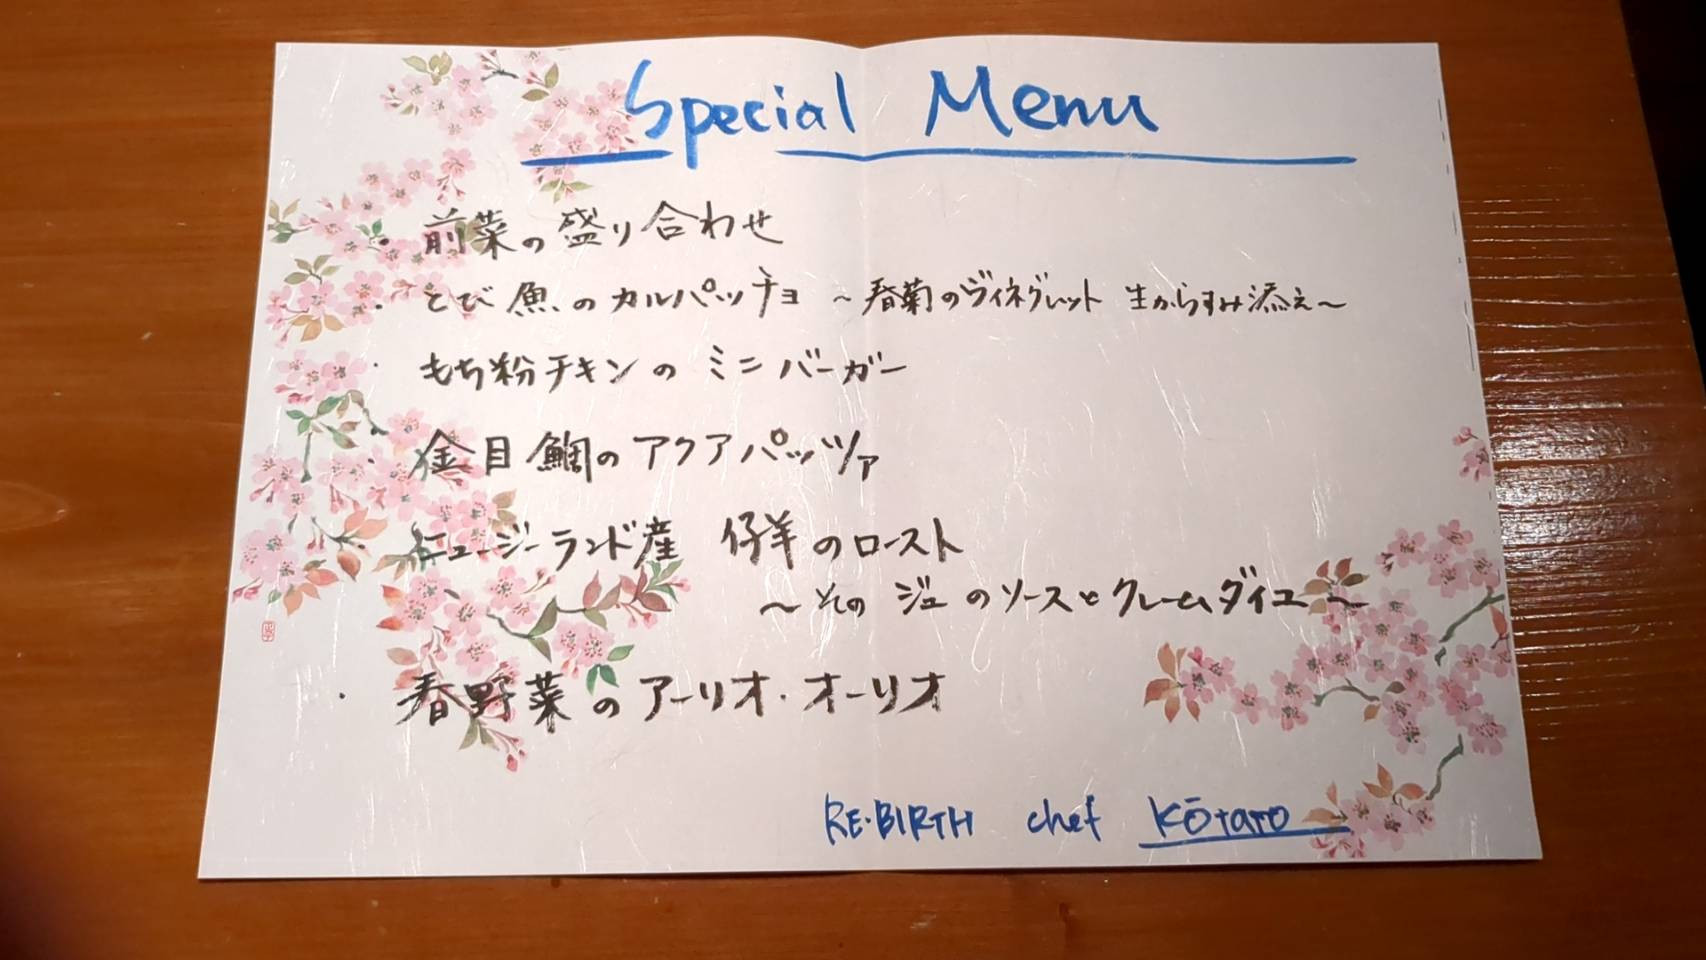 Special Menu
・前菜の盛り合わせ
・とび魚のカルパッチョ ～春菊のヴィネグレット 生からすみ添え～
・もち粉チキンのミニバーガー
・金目鯛のアクアパッツァ
・ニュージーランド産 仔羊のロースト
～そのジュのソースとクレームダイユ～
・春野菜のアーリオ・オーリオ
RE・BIRTH chef Kōtaro